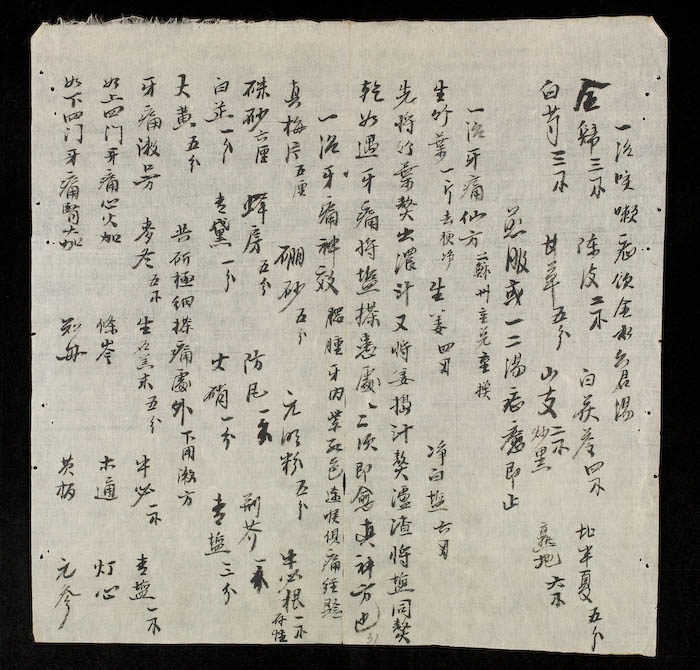 一治咳嗽症使金水六君湯
全歸三不 陳皮二不 白茯苓四不 北半夏五分
白芍三不 甘草五分 山支二不炒黑 熟地六不
煎服或一二湯症癒即止
一治牙痛仙方
生竹葉一斤去梗净 生姜四刃 净白塩六刃
先將竹葉熬出濃汁又將姜搗汁熬瀘渣將塩同熬
乾如遇牙痛將塩搽患處二三次即愈真神方也
一治牙痛神效 腮腫牙肉紫紅色連喉俱痛經驗
真梅片五厘 硼砂五分 元明粉五分
硃砂六厘 蜂房五分 防風一不 荆芥一不
白芷一分 青黛一分 火硝一分 青塩三分
大黃五分 共研極細搽痛處外下用漱方
牙痛漱
麥冬五不 生石羔末五分 青塩一不
如上四门牙痛心火加 條芩 木通 灯心
如下四门牙痛腎火加 知母 黃柏 元參